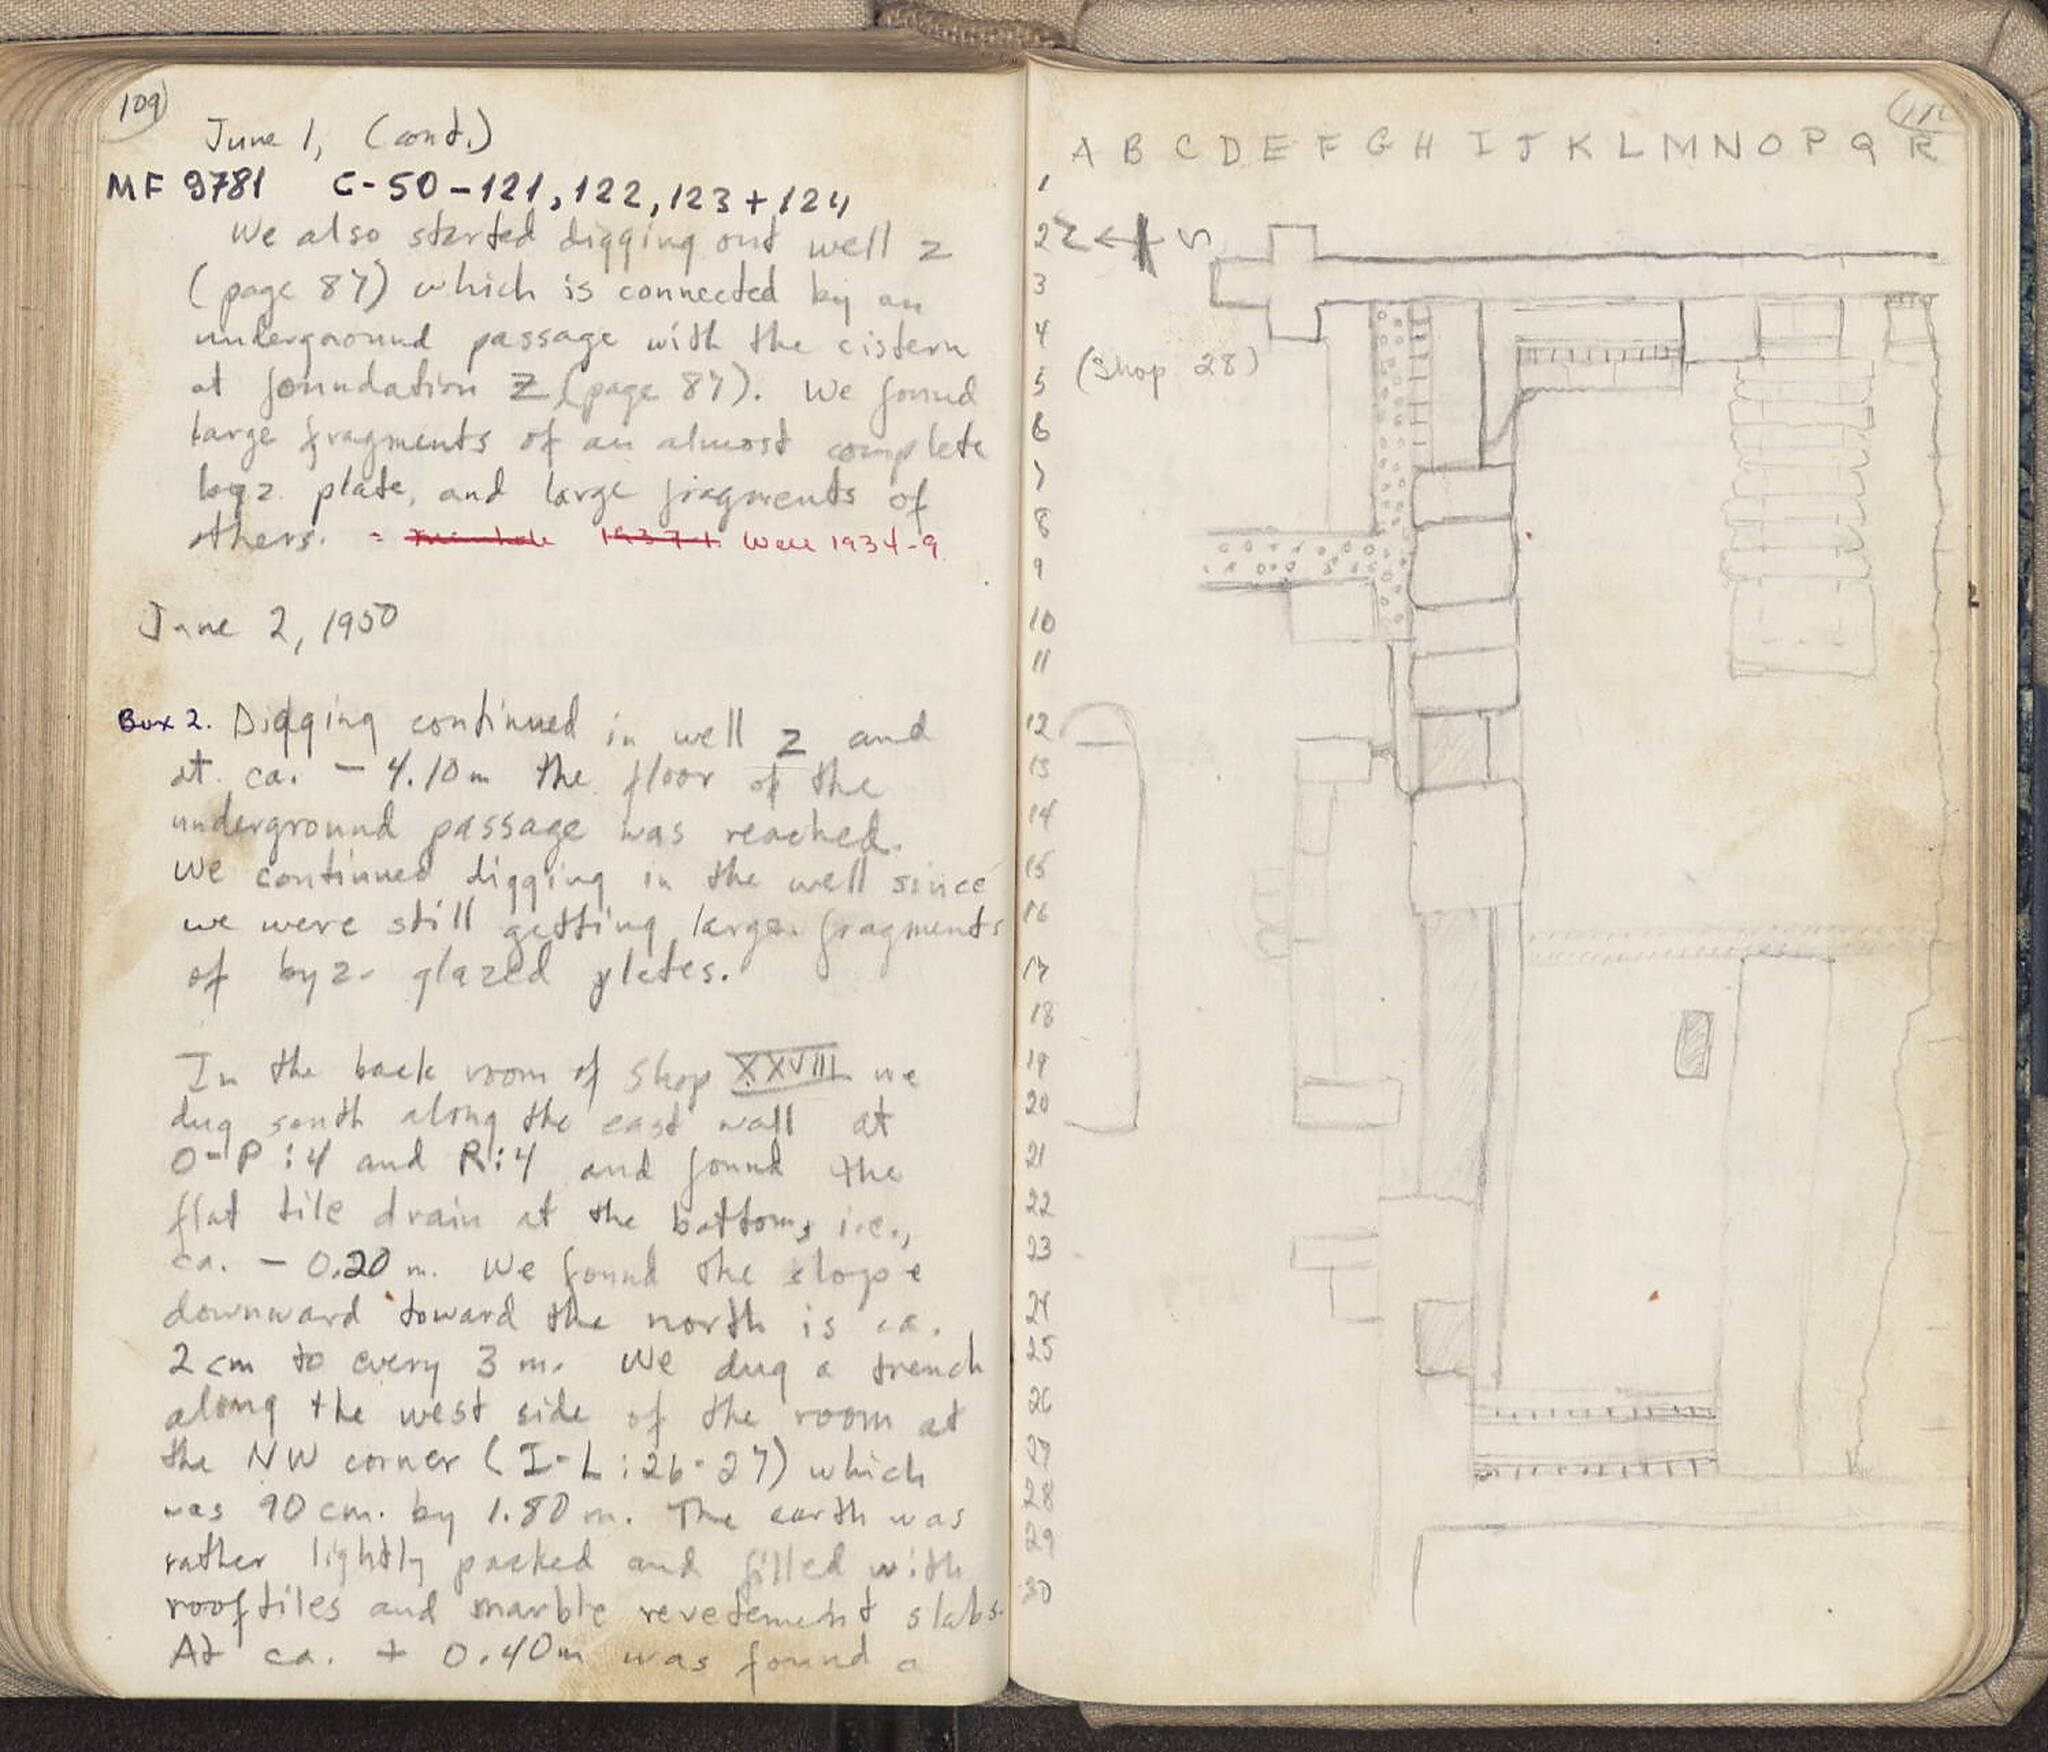 109
June 1, (cont.)
MF 9781 C-50-121, 122, 123 + 124
We also started digging out well z
(page 87) which is connected by an
underground passage with the cistern
at foundation Z (page 87). We found
large fragments of an almost complete
byz. plate, and large fragments of
others. = manhole 1937-1. Well 1934-9
June 2, 1950
Box 2. Digging continued in well z and
at ca. - 4.10 m the floor of the
underground passage was reached.
We continued digging in the well since
we were still getting large fragments
of byz. glazed plates.
In the back room of shop XXVIII we
dug south along the east wall at
O-P:4 and R:4 and found the
flat tile drain at the bottom, i.e.,
ca. - 0.20 m. We found the slope
downward toward the north is ca.
2 cm to every 3 m. We dug a trench
along the west side of the room at
the NW corner (I-L:26-27) which
was 90 cm. by 1.80 m. The earth was
rather lightly packed and filled with
roof tiles and marble revetement slabs.
At ca. + 0.40 m was found a
A B C D E F G H I J K L M N O P Q R
1
2 N S
3
4
(Shop 28)
5
6
7
8
9
10
11
12
13
14
15
16
17
18
19
20
21
22
23
24
25
26
27
28
29
30